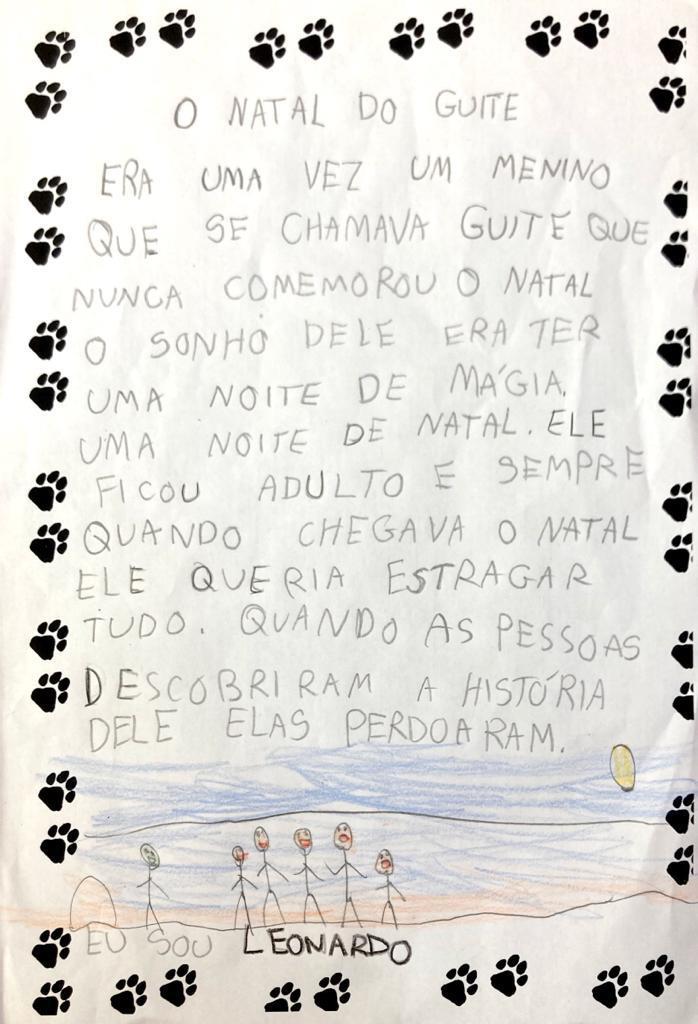 O NATAL DO GUITE
ERA UMA VEZ UM MENINO
QUE SE CHAMAVA GUITE QUE
NUNCA COMEMOROU O NATAL
O SONHO DELE ERA TER
UMA NOITE DE MÁGIA,
UMA NOITE DE NATAL. ELE
FICOU ADULTO E SEMPRE
QUANDO CHEGAVA O NATAL
ELE QUERIA ESTRAGAR
TUDO. QUANDO AS PESSOAS
DESCOBRIRAM A HISTÓRIA
DELE ELAS PERDOARAM.
EU SOU LEONARDO